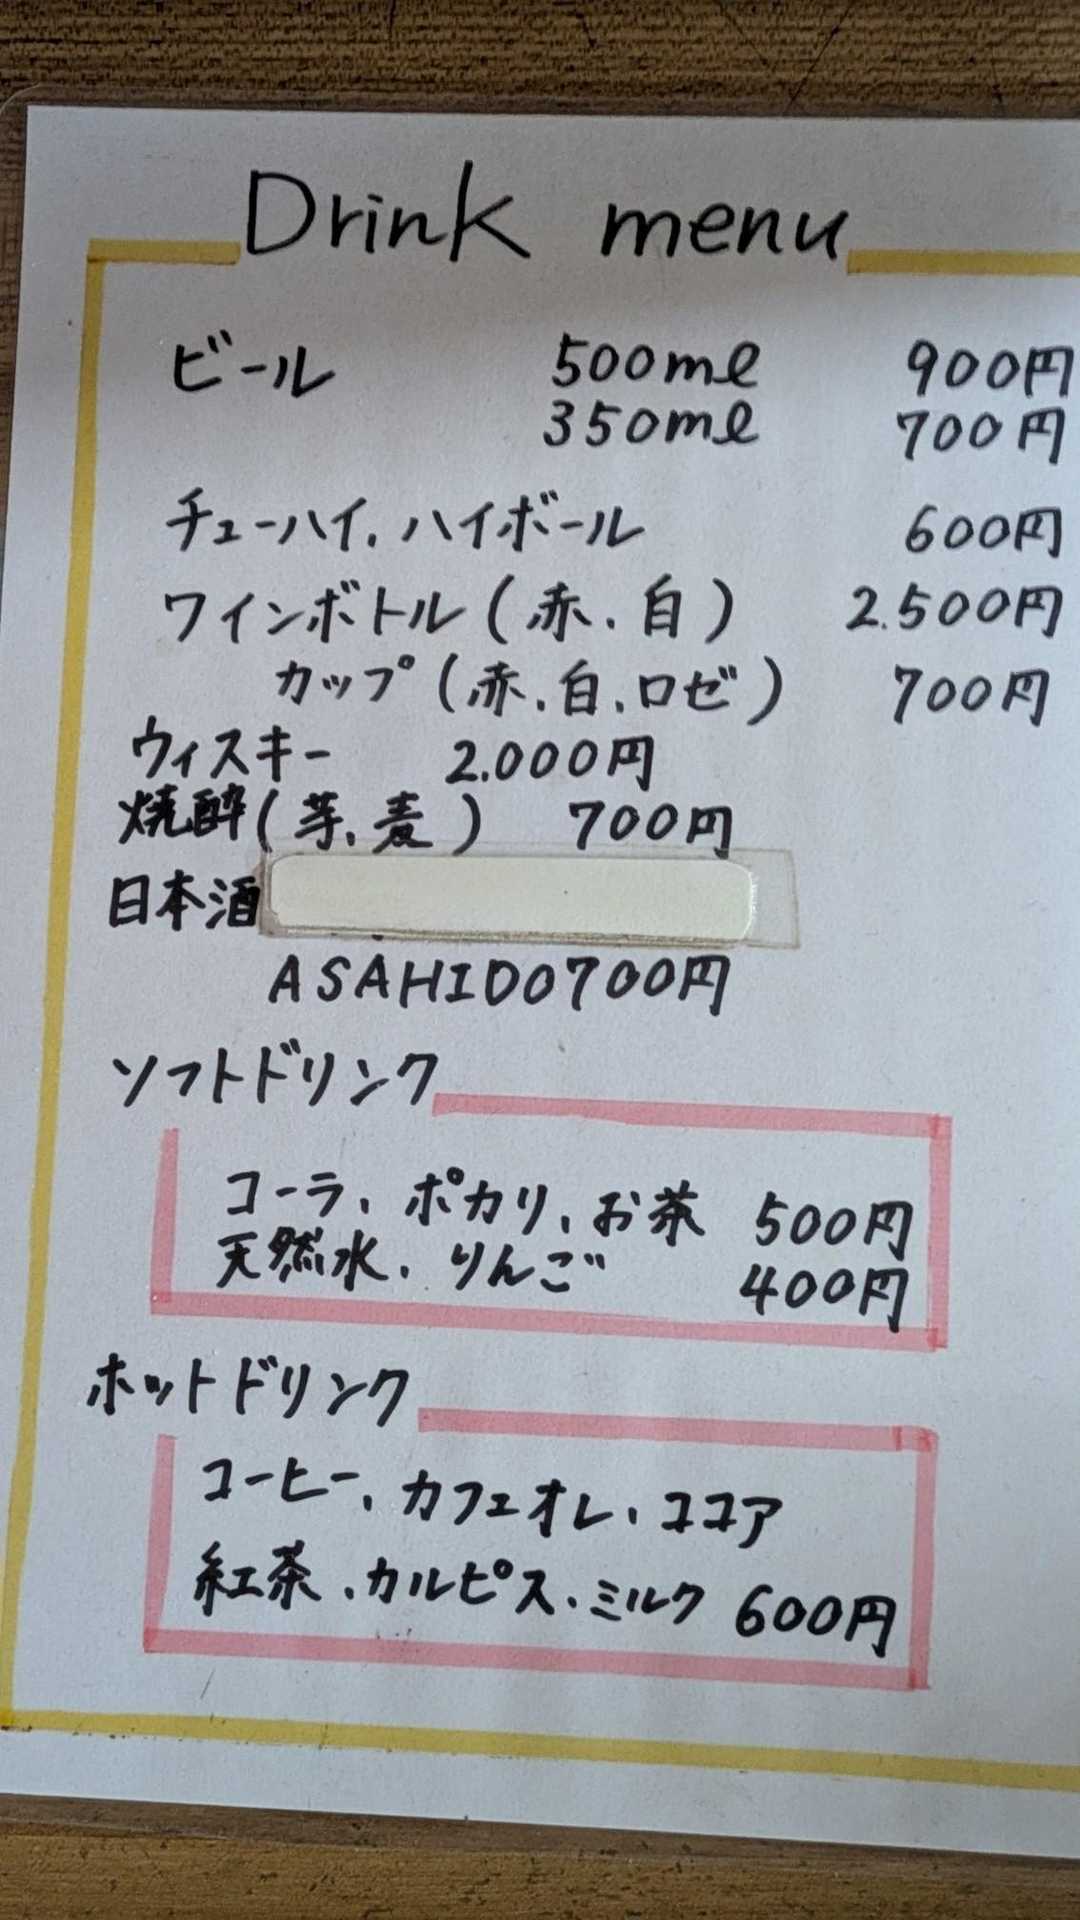 Drink menu
ビール 500ml 900円
350ml 700円
チューハイ.ハイボール 600円
ワインボトル(赤.白) 2.500円
カップ(赤.白.ロゼ) 700円
ウィスキー 2.000円
焼酔(芋、麦) 700円
日本酒
ASAHIDO700円
ソフトドリンク
コーラ、ポカリ、お茶 500円
天然水、りんご 400円
ホットドリンク
コーヒー、カフェオレ、ココア
紅茶、カルピス、ミルク 600円